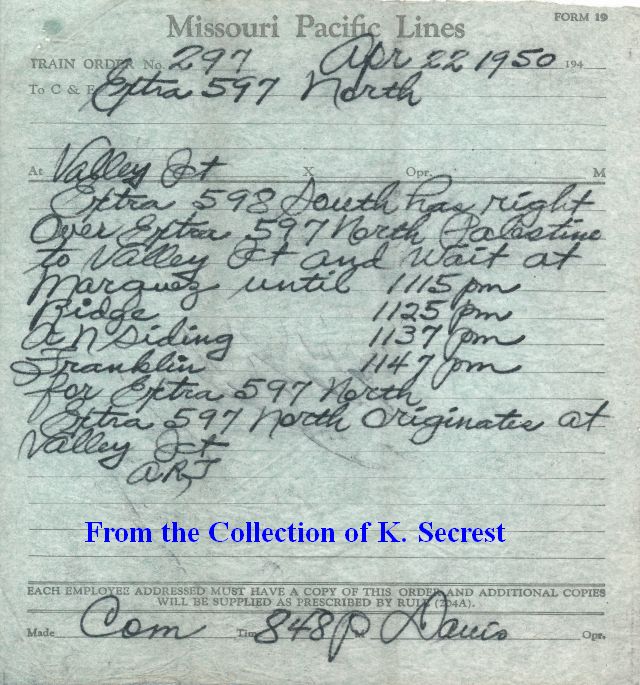 FORM 19
Missouri Pacific Lines
TRAIN ORDER No. 297 Apr 22 1950 194
To C & E Extra 597 North
At Valley Jct X Opr. M
Extra 598 South has right
Over Extra 597 North Palestine
to Valley Jct and Wait at
Marquez until 1115 pm
Ridge 1125 pm
A N Siding 1137 pm
Franklin 1147 pm
for Extra 597 North
Extra 597 North Originates at
Valley Jct
ARJ
From the Collection of K. Secrest
EACH EMPLOYEE ADDRESSED MUST HAVE A COPY OF THIS ORDER AND ADDITIONAL COPIES
WILL BE SUPPLIED AS PRESCRIBED BY RULE (204A).
Made Com Time 848 p Davis Opr.